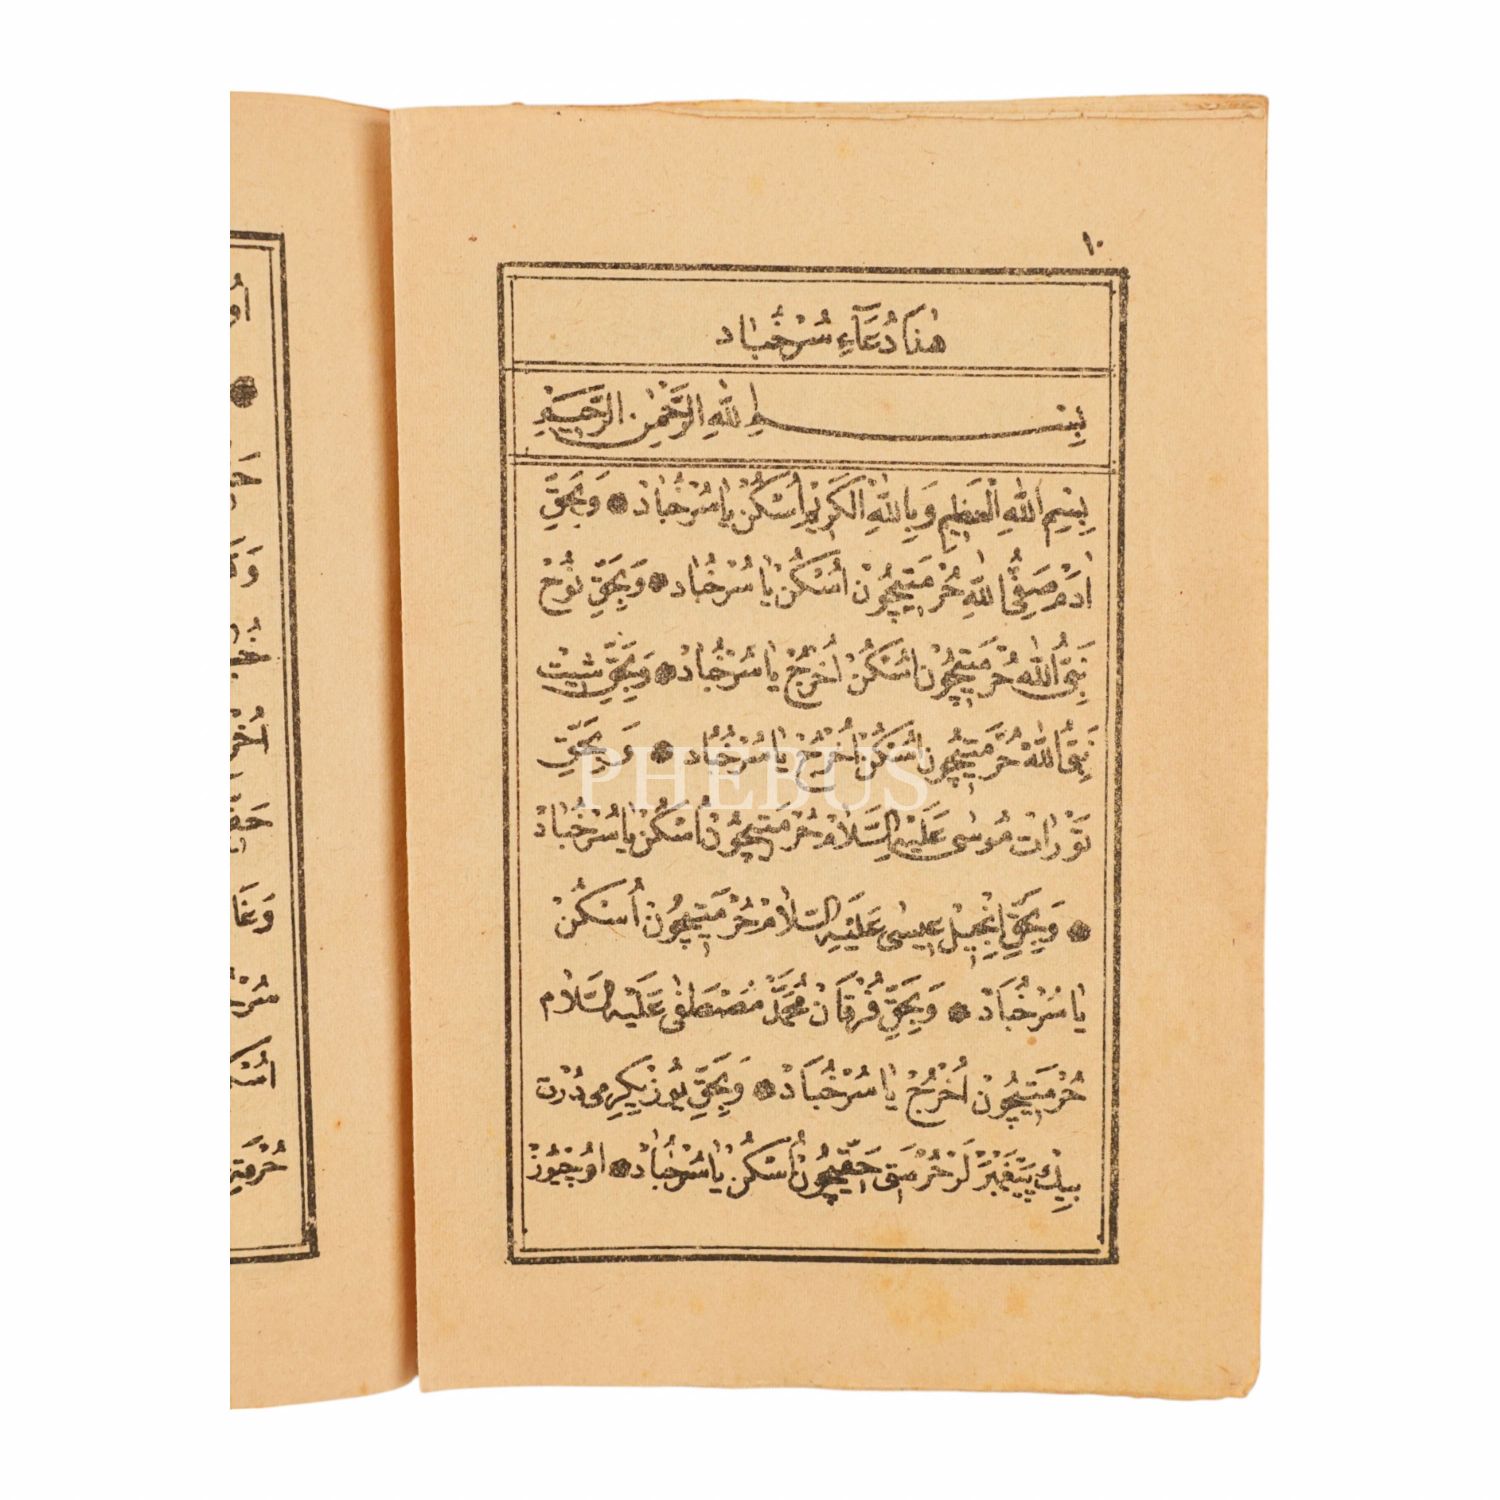 ١٠
هٰذَا دُعَآءِ سُرْخُبَاد
بِسْمِ اللّٰهِ الرَّحْمٰنِ الرَّحِيمِ
بِسْمِ اللّٰهِ الْعَظِيمِ وَبِاللّٰهِ الْكَرِيْمِ اُسْكُنْ يَا سُرْخُبَادْ ● وَبِحَقِّ
اٰدَمْ صَفِىُّ اللّٰهِ حُرْمَتِيچُونْ اُسْكُنْ يَا سُرْخُبَاد ● وَبِحَقِّ نُوْحْ
نَبِىُّ اللّٰه حُرْمَتِيچُونْ اُسْكُنْ اُخْرُجْ يَا سُرْخُبَادْ ● وَبِحَقِّ شِيتْ
نَبِىُّ اللّٰهْ حُرْمَتِيچُونْ اُسْكُنْ اُخْرُجْ يَا سُرْخُبَاد ● وَبِحَقِّ
PHEBUS
تَوْرَاتِ مُوسٰى عَلَيْهِ السَّلَامْ حُرْمَتِيچُونْ اُسْكُنْ يَا سُرْخُبَادْ
● وَبِحَقِّ اِنْجِيلِ عِيسٰى عَلَيْهِ السَّلَامْ حُرْمَتِيچُونْ اُسْكُنْ
يَا سُرْخُبَادْ ● وَبِحَقِّ فُرْقَانْ مُحَمَّدْ مُصْطَفٰى عَلَيْهِ السَّلَام
حُرْمَتِيچُونْ اُخْرُجْ يَا سُرْخُبَادْ ● وَبِحَقِّ يُوزْ يِكِرْمِى دُرْت
بِيكْ پَيْغَمْبَرْلَرْ حُرْمَتِى حَقِّيچُونْ اُسْكُنْ يَا سُرْخُبَادْ ● اُوچْيُوزْ